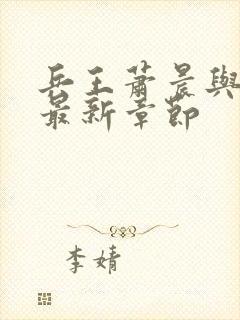 兵王蕭晨與
最新章節
李婧